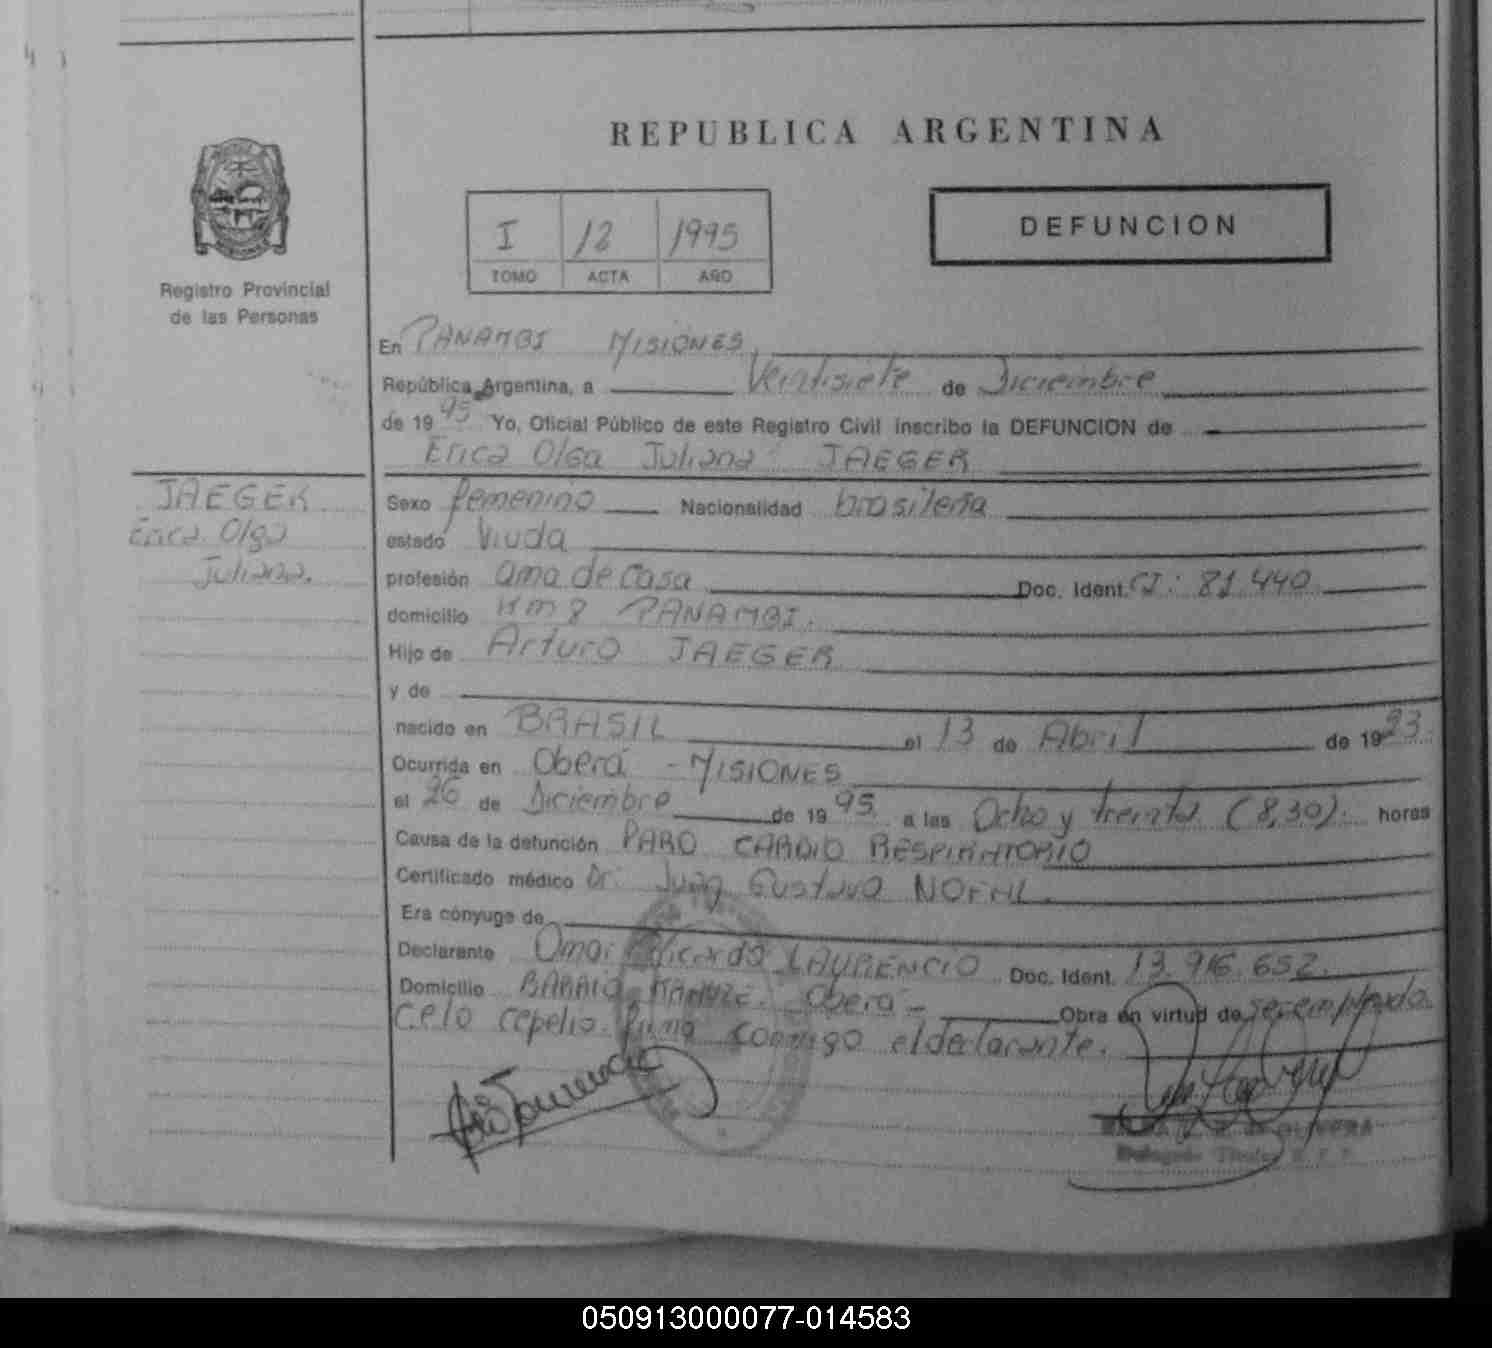 REPUBLICA ARGENTINA
Registro Provincial
de las Personas
I 12 1995
TOMO ACTA AÑO
DEFUNCION
En PANAMBI MISIONES
República Argentina, a Veintisiete de Diciembre
de 19 95 Yo, Oficial Público de este Registro Civil inscribo la DEFUNCION de
Erica Olga Juliana JAEGER
JAEGER
Erica Olga
Juliana.
Sexo femenino Nacionalidad brasileña
estado Viuda
profesión ama de casa Doc. Ident. CI: 81.440
domicilio Km 8 PANAMBI.
Hijo de Arturo JAEGER
y de
nacido en BRASIL el 13 de Abril de 19
Ocurrida en Oberá - MISIONES
el 26 de Diciembre de 19 95 a las Ocho y treinta (8,30). horas
Causa de la defunción PARO CARDIO RESPIRATORIO
Certificado médico Dr. Juan Gustavo
Era cónyuge de
Declarante Omar Ricardo LAURENCIO Doc. Ident. 13.916.652.
Domicilio BARRIO Oberá - Obra en virtud de ser empleado
C.E.L.O cepelio. Firma conmigo el declarante.
DE OLIVERA
Delegado Titular R. P. P.
050913000077-014583